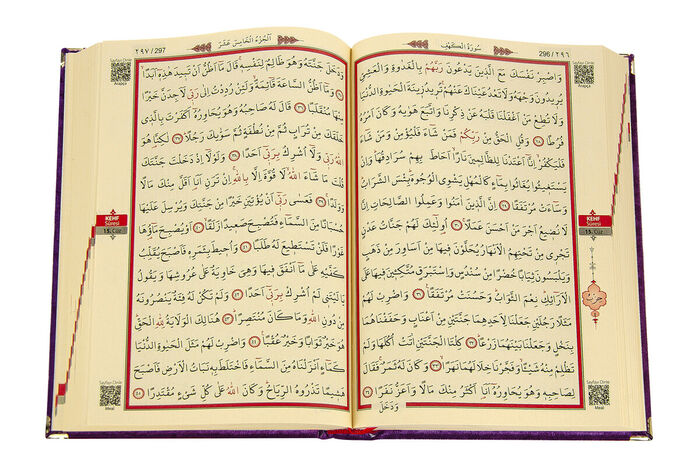 سُورَةُ الْكَهْفِ
296 / ٢٩٦
وَاصْبِرْ نَفْسَكَ مَعَ الَّذ۪ينَ يَدْعُونَ رَبَّهُمْ بِالْغَدٰوةِ وَالْعَشِيِّ
يُر۪يدُونَ وَجْهَهُ وَلَا تَعْدُ عَيْنَاكَ عَنْهُمْ تُر۪يدُ ز۪ينَةَ الْحَيٰوةِ الدُّنْيَا
وَلَا تُطِعْ مَنْ اَغْفَلْنَا قَلْبَهُ عَنْ ذِكْرِنَا وَاتَّبَعَ هَوٰيهُ وَكَانَ اَمْرُهُ
فُرُطًا ﴿٢٨﴾ وَقُلِ الْحَقُّ مِنْ رَبِّكُمْ فَمَنْ شَٓاءَ فَلْيُؤْمِنْ وَمَنْ شَٓاءَ
فَلْيَكْفُرْ اِنَّٓا اَعْتَدْنَا لِلظَّالِم۪ينَ نَارًا اَحَاطَ بِهِمْ سُرَادِقُهَا وَاِنْ
يَسْتَغ۪يثُوا يُغَاثُوا بِمَٓاءٍ كَالْمُهْلِ يَشْوِي الْوُجُوهَ بِئْسَ الشَّرَابُ
وَسَٓاءَتْ مُرْتَفَقًا ﴿٢٩﴾ اِنَّ الَّذ۪ينَ اٰمَنُوا وَعَمِلُوا الصَّالِحَاتِ اِنَّا
لَا نُض۪يعُ اَجْرَ مَنْ اَحْسَنَ عَمَلًا ﴿٣٠﴾ اُولٰٓئِكَ لَهُمْ جَنَّاتُ عَدْنٍ
تَجْر۪ي مِنْ تَحْتِهِمُ الْاَنْهَارُ يُحَلَّوْنَ ف۪يهَا مِنْ اَسَاوِرَ مِنْ ذَهَبٍ
وَيَلْبَسُونَ ثِيَابًا خُضْرًا مِنْ سُنْدُسٍ وَاِسْتَبْرَقٍ مُتَّكِـ۪ٔينَ ف۪يهَا عَلَى
الْاَرَٓائِكِ نِعْمَ الثَّوَابُ وَحَسُنَتْ مُرْتَفَقًا ﴿٣١﴾ وَاضْرِبْ لَهُمْ
مَثَلًا رَجُلَيْنِ جَعَلْنَا لِاَحَدِهِمَا جَنَّتَيْنِ مِنْ اَعْنَابٍ وَحَفَفْنَاهُمَا
بِنَخْلٍ وَجَعَلْنَا بَيْنَهُمَا زَرْعًا ﴿٣٢﴾ كِلْتَا الْجَنَّتَيْنِ اٰتَتْ اُكُلَهَا وَلَمْ
تَظْلِمْ مِنْهُ شَيْـًٔا وَفَجَّرْنَا خِلَالَهُمَا نَهَرًا ﴿٣٣﴾ وَكَانَ لَهُ ثَمَرٌ فَقَالَ
لِصَاحِبِه۪ وَهُوَ يُحَاوِرُهُٓ اَنَا۬ اَكْثَرُ مِنْكَ مَالًا وَاَعَزُّ نَفَرًا ﴿٣٤﴾
وَدَخَلَ
Sayfayı Dinle
Arapça
KEHF
Sûresi
15. Cüz
حزب
Sayfayı Dinle
Meal
اَلْجُزْءُ الْخَامِسَ عَشَرَ
٢٩٧ / 297
وَدَخَلَ جَنَّتَهُ وَهُوَ ظَالِمٌ لِنَفْسِه۪ قَالَ مَٓا اَظُنُّ اَنْ تَب۪يدَ هٰذِه۪ٓ اَبَدًا
﴿٣٥﴾ وَمَٓا اَظُنُّ السَّاعَةَ قَٓائِمَةً وَلَئِنْ رُدِدْتُ اِلٰى رَبّ۪ي لَاَجِدَنَّ خَيْرًا
مِنْهَا مُنْقَلَبًا ﴿٣٦﴾ قَالَ لَهُ صَاحِبُهُ وَهُوَ يُحَاوِرُهُٓ اَكَفَرْتَ بِالَّذ۪ي
خَلَقَكَ مِنْ تُرَابٍ ثُمَّ مِنْ نُطْفَةٍ ثُمَّ سَوّٰيكَ رَجُلًا ﴿٣٧﴾ لٰكِنَّا۬ هُوَ
اللّٰهُ رَبّ۪ي وَلَٓا اُشْرِكُ بِرَبّ۪ٓي اَحَدًا ﴿٣٨﴾ وَلَوْلَٓا اِذْ دَخَلْتَ جَنَّتَكَ
قُلْتَ مَا شَٓاءَ اللّٰهُ لَا قُوَّةَ اِلَّا بِاللّٰهِ اِنْ تَرَنِ اَنَا۬ اَقَلَّ مِنْكَ مَالًا
وَوَلَدًا ﴿٣٩﴾ فَعَسٰى رَبّ۪ٓي اَنْ يُؤْتِيَنِ خَيْرًا مِنْ جَنَّتِكَ وَيُرْسِلَ عَلَيْهَا
حُسْبَانًا مِنَ السَّمَٓاءِ فَتُصْبِحَ صَع۪يدًا زَلَقًا ﴿٤٠﴾ اَوْ يُصْبِحَ مَٓاؤُ۬هَا
غَوْرًا فَلَنْ تَسْتَط۪يعَ لَهُ طَلَبًا ﴿٤١﴾ وَاُح۪يطَ بِثَمَرِه۪ فَاَصْبَحَ يُقَلِّبُ
كَفَّيْهِ عَلٰى مَٓا اَنْفَقَ ف۪يهَا وَهِيَ خَاوِيَةٌ عَلٰى عُرُوشِهَا وَيَقُولُ
يَا لَيْتَن۪ي لَمْ اُشْرِكْ بِرَبّ۪ٓي اَحَدًا ﴿٤٢﴾ وَلَمْ تَكُنْ لَهُ فِئَةٌ يَنْصُرُونَهُ
مِنْ دُونِ اللّٰهِ وَمَا كَانَ مُنْتَصِرًا ﴿٤٣﴾ هُنَالِكَ الْوَلَايَةُ لِلّٰهِ الْحَقِّ
هُوَ خَيْرٌ ثَوَابًا وَخَيْرٌ عُقْبًا ﴿٤٤﴾ وَاضْرِبْ لَهُمْ مَثَلَ الْحَيٰوةِ الدُّنْيَا
كَمَٓاءٍ اَنْزَلْنَاهُ مِنَ السَّمَٓاءِ فَاخْتَلَطَ بِه۪ نَبَاتُ الْاَرْضِ فَاَصْبَحَ
هَش۪يمًا تَذْرُوهُ الرِّيَاحُ وَكَانَ اللّٰهُ عَلٰى كُلِّ شَيْءٍ مُقْتَدِرًا ﴿٤٥﴾
Sayfayı Dinle
Arapça
KEHF
Sûresi
15. Cüz
Sayfayı Dinle
Meal